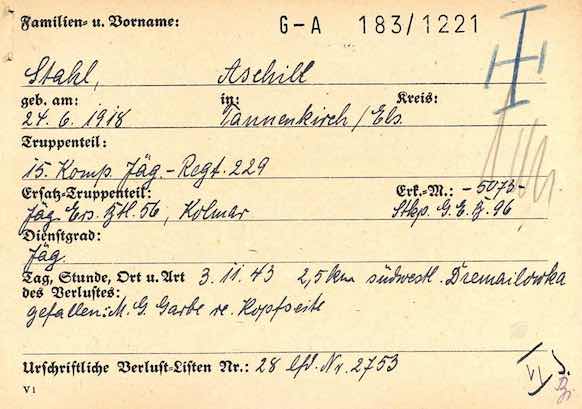 Familien- u. Vorname: G-A 183/1221
Stahl, Aschill
geb. am: in: Kreis:
24. 6. 1918 Tannenkirch/Els.
Truppenteil:
15. Komp. Jäg.-Regt. 229
Ersatz-Truppenteil: Erk.-M.: -5073-
Jäg. Ers. Btl. 56, Kolmar Stkp. G.E.B. 96
Dienstgrad:
Jäg.
Tag, Stunde, Ort u. Art 3. 11. 43 2,5 km südwestl. Dremailowka
des Verlustes:
gefallen: M.G. Garbe re. Kopfseite
Urschriftliche Verlust-Listen Nr.: 28 lfd. Nr. 2753
V 1